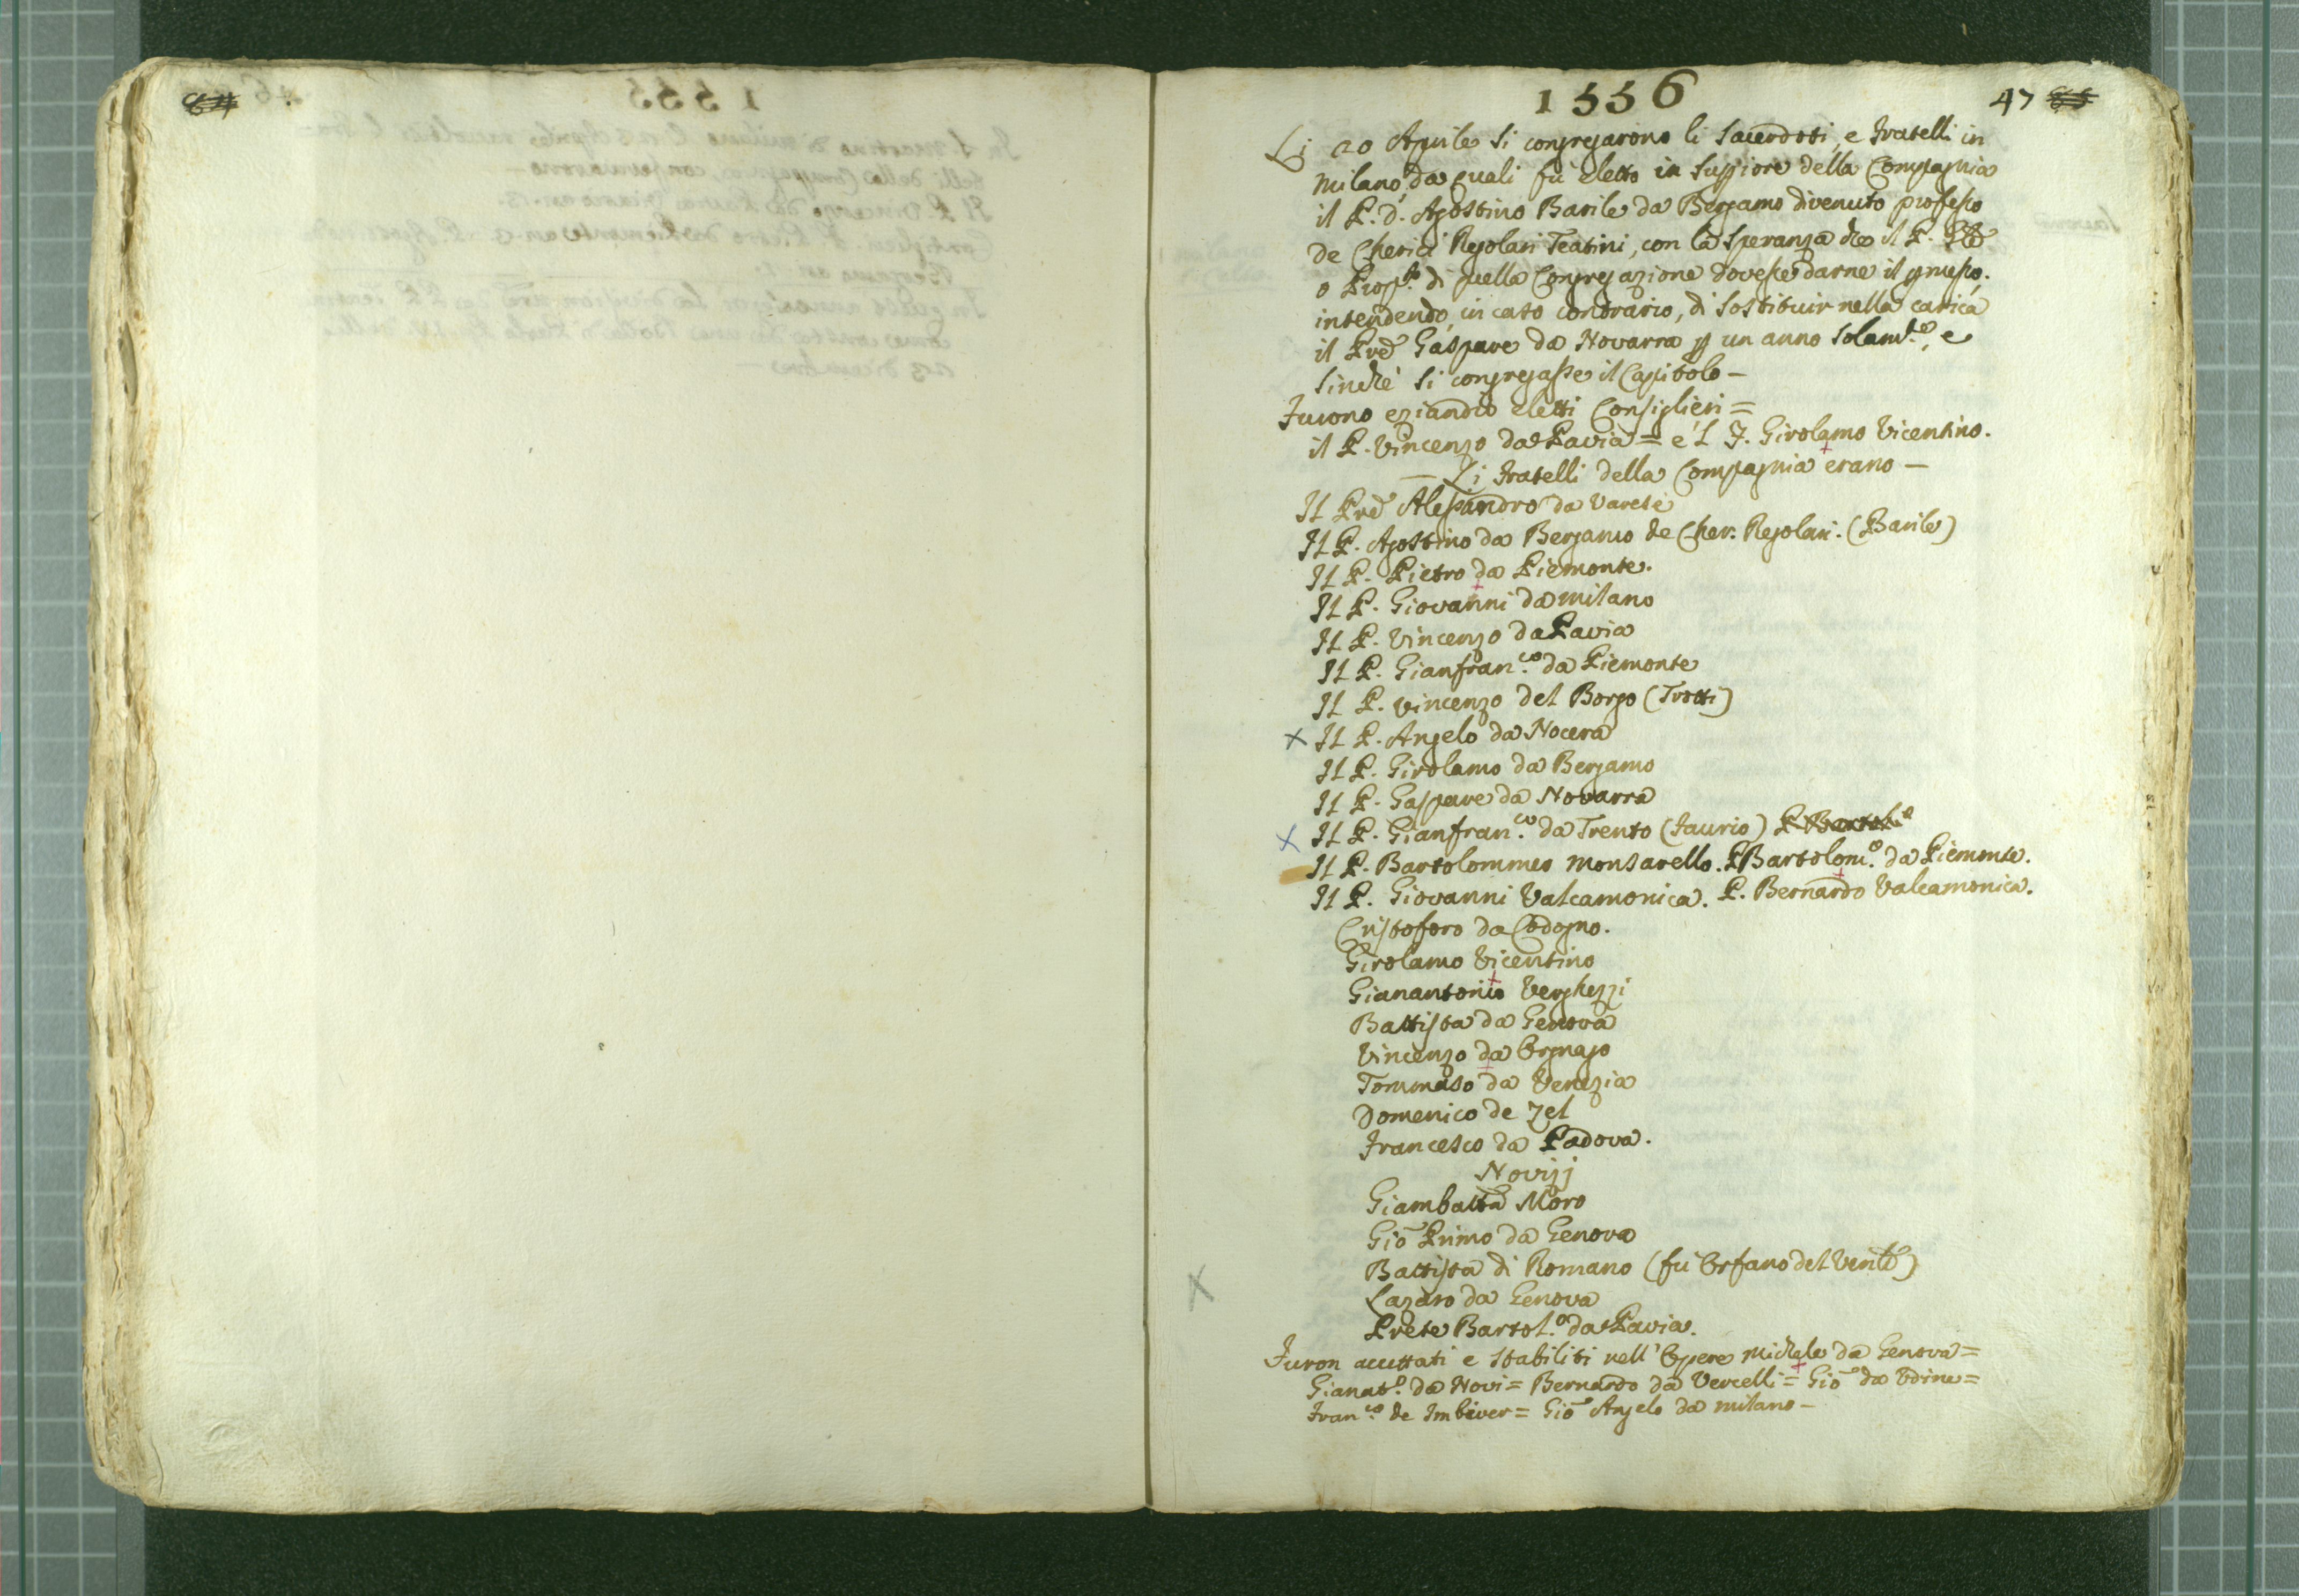 1556
47
Li 20 Aprile si congregarono li Sacerdoti, e Fratelli in
Milano, da quali fù eletto in Supp̃iore della Compagnia
il P. D. Agostino Barile da Bergamo divenuto professo
de Cherici Regolari Teatini, con la speranza che il P.
o Prop.to di quella Congregazione dovesse darne il p̃messo.
intendendo, in caso contrario, di sostituir nella carica
il Prẽ Gaspare da Novarra p un anno solam.te, e
sinchè si congregasse il Capitolo —
Furono eziandio eletti Consiglieri =
il P. Vincenzo da Pavia = e 'l F. Girolamo Vicentino.
— Li Fratelli della Compagnia erano —
Il Prẽ Alessandro da Varese
Il P. Agostino da Bergamo de Cher. Regolari. (Barile)
Il P. Pietro da Piemonte.
Il P. Giovanni da Milano
Il P. Vincenzo da Pavia
Il P. Gianfran.co da Piemonte
Il P. Vincenzo del Borgo (Trotti)
x Il P. Angelo da Nocera
Il P. Girolamo da Bergamo
Il P. Gaspare da Novarra
x Il P. Gianfran.co da Trento (Faurio)
Il P. Bartolommeo Monsarello. P. Bartolom.o da Piemonte.
Il P. Giovanni Valcamonica. P. Bernardo Valcamonica.
Cristoforo da Codogno.
Girolamo Vicentino
Gianantonio Verghezzi
Battista da Genova
Vincenzo da Orgnago
Tommaso da Venezia
Domenico de Zel
Francesco da Padova.
Novizj
Giambatta Moro
Giõ Primo da Genova
Battista di Romano (fù Orfano del Ven.le)
Lazaro da Genova
x
Prete Bartol.o da Pavia.
Furon accettati e stabiliti nell'Opere Michele da Genova =
Gianat.o da Novi = Bernardo da Vercelli = Giõ da Udine =
Fran.co de Imbiver = Giõ Angelo da Milano —